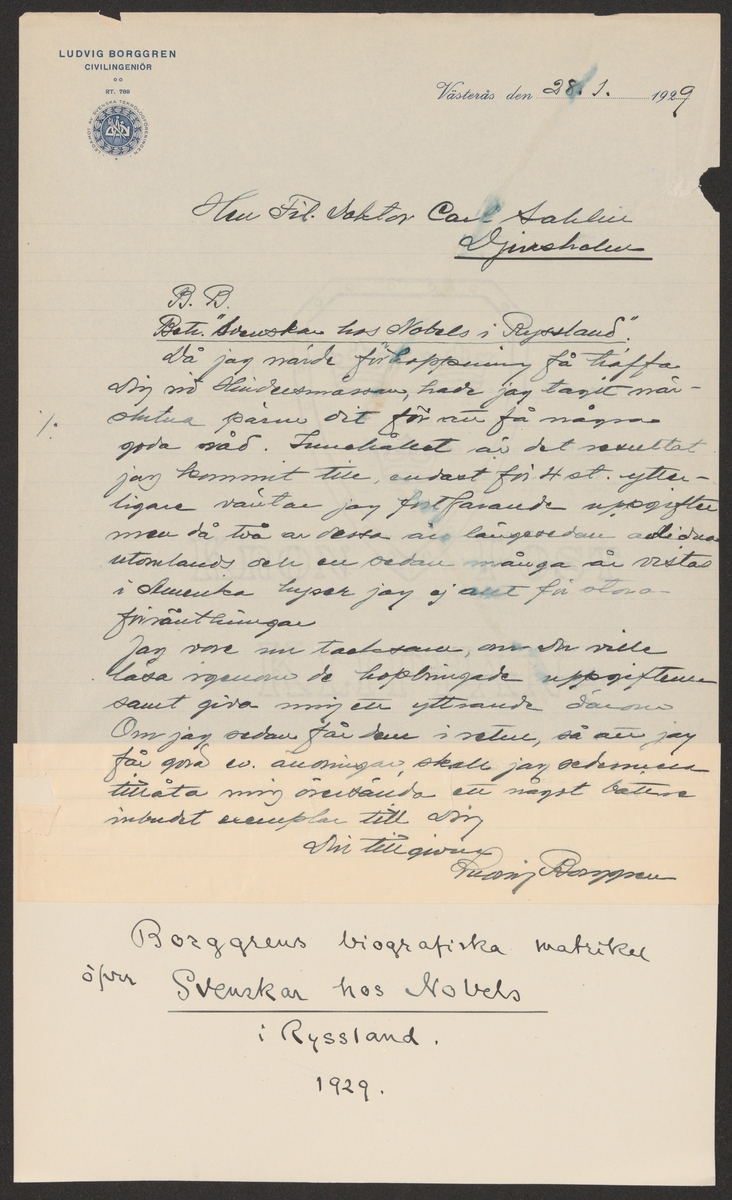 LUDVIG BORGGREN
CIVILINGENIÖR
RT. 789
LEDAMOT AV SVENSKA TEKNOLOGFÖRENINGEN
Västerås den 28. 1. 1929
Herr Fil. Doktor Carl Sahlin
Djursholm
B. B.
Betr. "Svenskar hos Nobels i Ryssland".
Då jag närde förhoppning få träffa
Dig vid Hindersmässan, hade jag tagit när-
slutna pärm dit för att få några
goda råd. Innehållet är det resultat
jag kommit till, endast för 4 st. ytter-
ligare väntar jag fortfarande uppgifter
men då två av dessa äro längesedan avlidna
utomlands och en sedan många år vistas
i Amerika hyser jag ej allt för stora
förväntningar
Jag vore nu tacksam, om Du ville
läsa igenom de hopbringade uppgifterna
samt giva mig ett yttrande därom
Om jag sedan får dem i retur, så att jag
får göra ev. ändringar, skall jag sedermera
tillåta mig översända ett något bättre
inbundet exemplar till Dig
Din tillgivne
Ludvig Borggren
Borggrens biografiska matrikel
öfver Svenskar hos Nobels
i Ryssland.
1929.